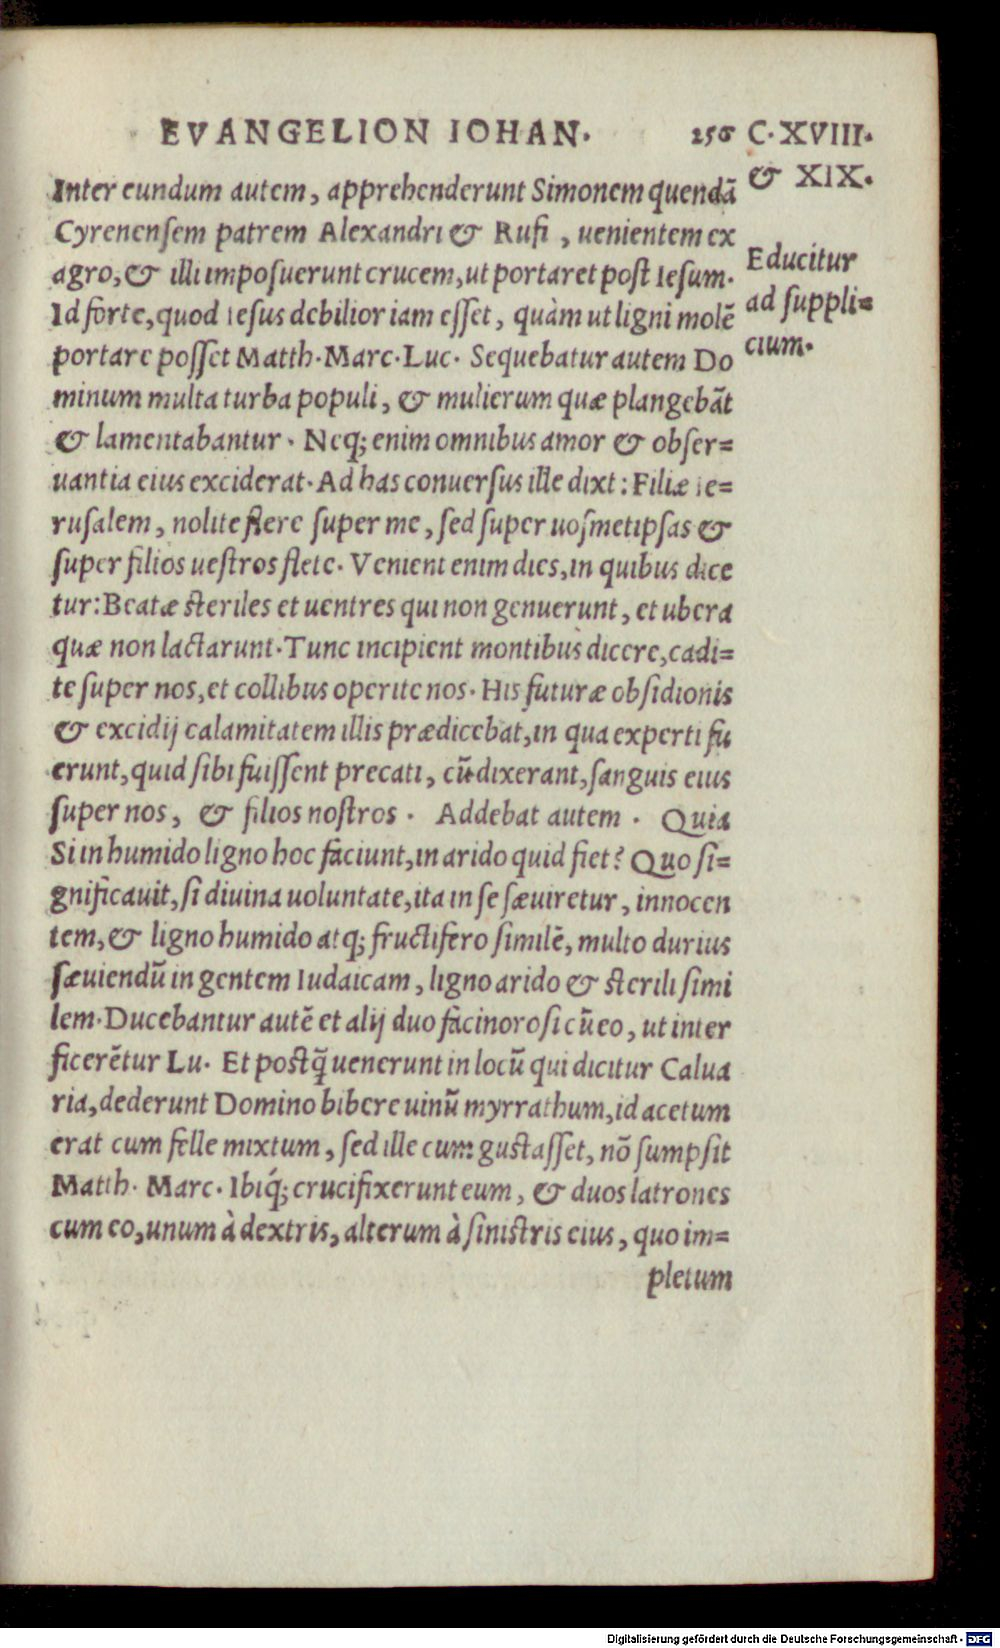 EVANGELION IOHAN. 256 C. XVIII.
& XIX.
Inter eundum autem, apprehenderunt Simonem quendã
Cyrenensem patrem Alexandri & Rufi, uenientem ex
agro, & illi imposuerunt crucem, ut portaret post Iesum.
Id forte, quod Iesus debilior iam esset, quàm ut ligni molẽ
portare posset Matth. Marc. Luc. Sequebatur autem Do
minum multa turba populi, & mulierum quæ plangebãt
& lamentabantur. Neq; enim omnibus amor & obser=
uantia eius exciderat. Ad has conuersus ille dixt: Filiæ Ie=
rusalem, nolite flere super me, sed super uosmetipsas &
super filios uestros flete. Venient enim dies, in quibus dice
tur: Beatæ steriles et uentres qui non genuerunt, et ubera
quæ non lactarunt. Tunc incipient montibus dicere, cadi=
te super nos, et collibus operite nos. His futuræ obsidionis
& excidij calamitatem illis prædicebat, in qua experti fu
erunt, quid sibi fuissent precati, cũ dixerant, sanguis eius
super nos, & filios nostros. Addebat autem. Quia
Si in humido ligno hoc faciunt, in arido quid fiet? Quo si=
gnificauit, si diuina uoluntate, ita in se sæuiretur, innocen
tem, & ligno humido atq; fructifero similẽ, multo durius
sæuiendũ in gentem Iudaicam, ligno arido & sterili simi
lem. Ducebantur autẽ et alij duo facinorosi cũ eo, ut inter
ficerẽtur Lu. Et postq̃ uenerunt in locũ qui dicitur Calua
ria, dederunt Domino bibere uinũ myrrathum, id acetum
erat cum felle mixtum, sed ille cum gustasset, nõ sumpsit
Matth. Marc. Ibiq́; crucifixerunt eum, & duos latrones
cum eo, unum à dextris, alterum à sinistris eius, quo im=
pletum
Educitur
ad suppli=
cium.
Digitalisierung gefördert durch die Deutsche Forschungsgemeinschaft - DFG